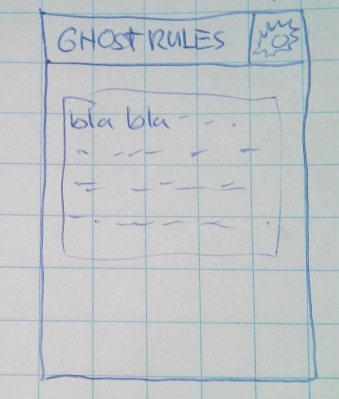 GHOST RULES
bla bla - - .